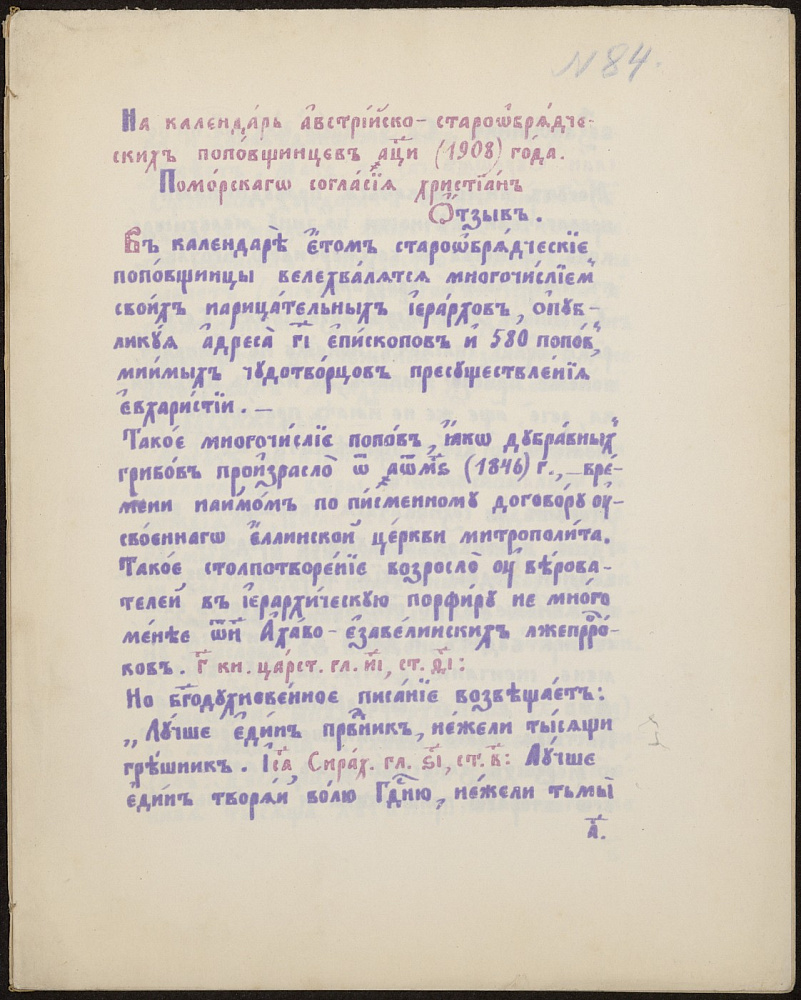 N 84.
На календа́рь а҆встрі́йско-старѡѡбрѧ́дче-
скихъ поповщинцевъ а҃ци (1908) го́да.
Помо́рскагѡ согла́сїѧ христїа́нъ
Ѿзывъ.
Въ календарѣ̀ е҆́томъ старѡѡбрѧ́дческїе
попо́вщинцы велехва́лятсѧ многочи́слїем
свои́хъ нарица́тельныхъ і҆ера́рхов, ѻ҆пуб-
лику́ѧ а҆дреса̀ г҃і е҆пи́скоповъ и҆ 580 попо́в,
мни́мыхъ чудотво́рцовъ пресуществле́нїѧ
е҆vхари́стїи. —
Тако́е многочи́слїе попо́въ, ꙗ҆́кѡ дубра́вных
грибо́въ произрасло̀ ѿ а҃ѡм҃ѕ (1846) г., вре́-
мени наимо́мъ по пи́сменному договору оу҆-
сво́еннагѡ е҆́ллинской це́ркви митрополи́та.
Тако́е столпотворе́нїе возросло̀ оу҆ вѣ́рова-
телей въ і҆ерархи́ческую порфи́ру не мно́го
ме́нѣе ѻ҆́ный А҆ха́во-е҆заве́линскихъ лжепрⷪ҇ро́-
ковъ. г҃ кн. ца́рст. гл. и҃і, ст. ѳ҃і:
Но бг҃одухнове́нное писа́нїе возвѣща́етъ:
„Лу́чше е҆ди́нъ првⷣникъ, не́жели ты́сѧщи
грѣ́шникъ. І҆са, Сира́х. гл. ѕ҃і, ст. в҃: Лу́чше
е҆ди́нъ творѧ́й во́лю Гдⷭ҇ню, не́жели тьмы̀
а҃.